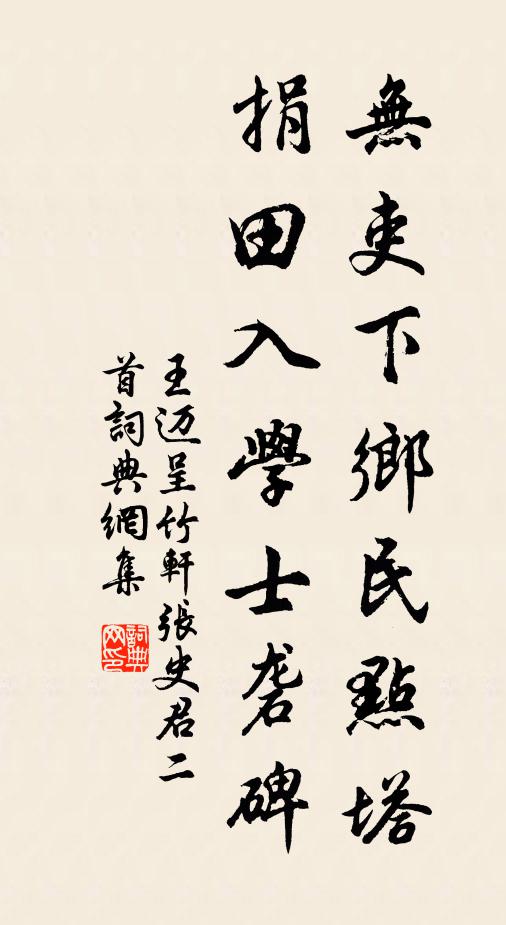 無吏下鄉民點塔
捐田入學士砻碑
王迈呈竹軒張史君二
首詞典網集
詞典网印